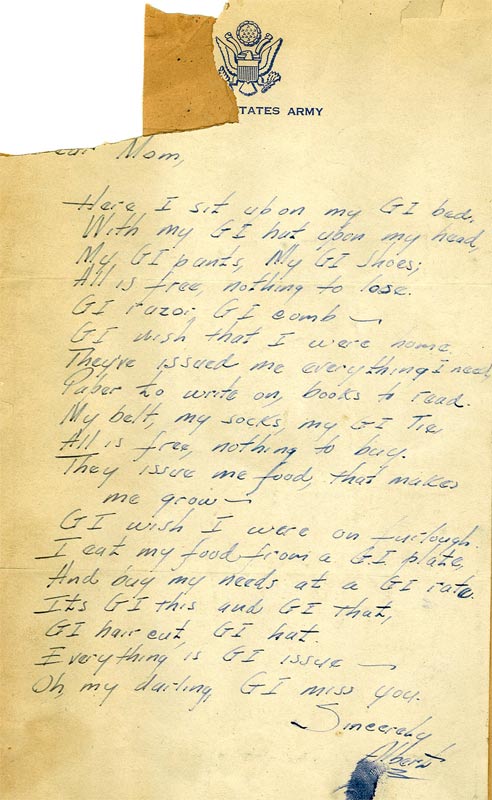 STATES ARMY
ear Mom,
Here I sit upon my GI bed,
With my GI hat upon my head,
My GI pants, My GI shoes;
All is free, nothing to lose.
GI razor, GI comb —
GI wish that I were home.
They've issued me everything I need,
Paper to write on, books to read.
My belt, my socks, my GI Tie,
All is free, nothing to buy.
They issue me food, that makes
me grow —
GI wish I were on furlough.
I eat my food from a G.I plate,
And buy my needs at a GI rate.
Its GI this and GI that,
GI haircut, GI hat.
Everything is GI issue —
Oh, my darling, GI miss you.
Sincerely
Albert